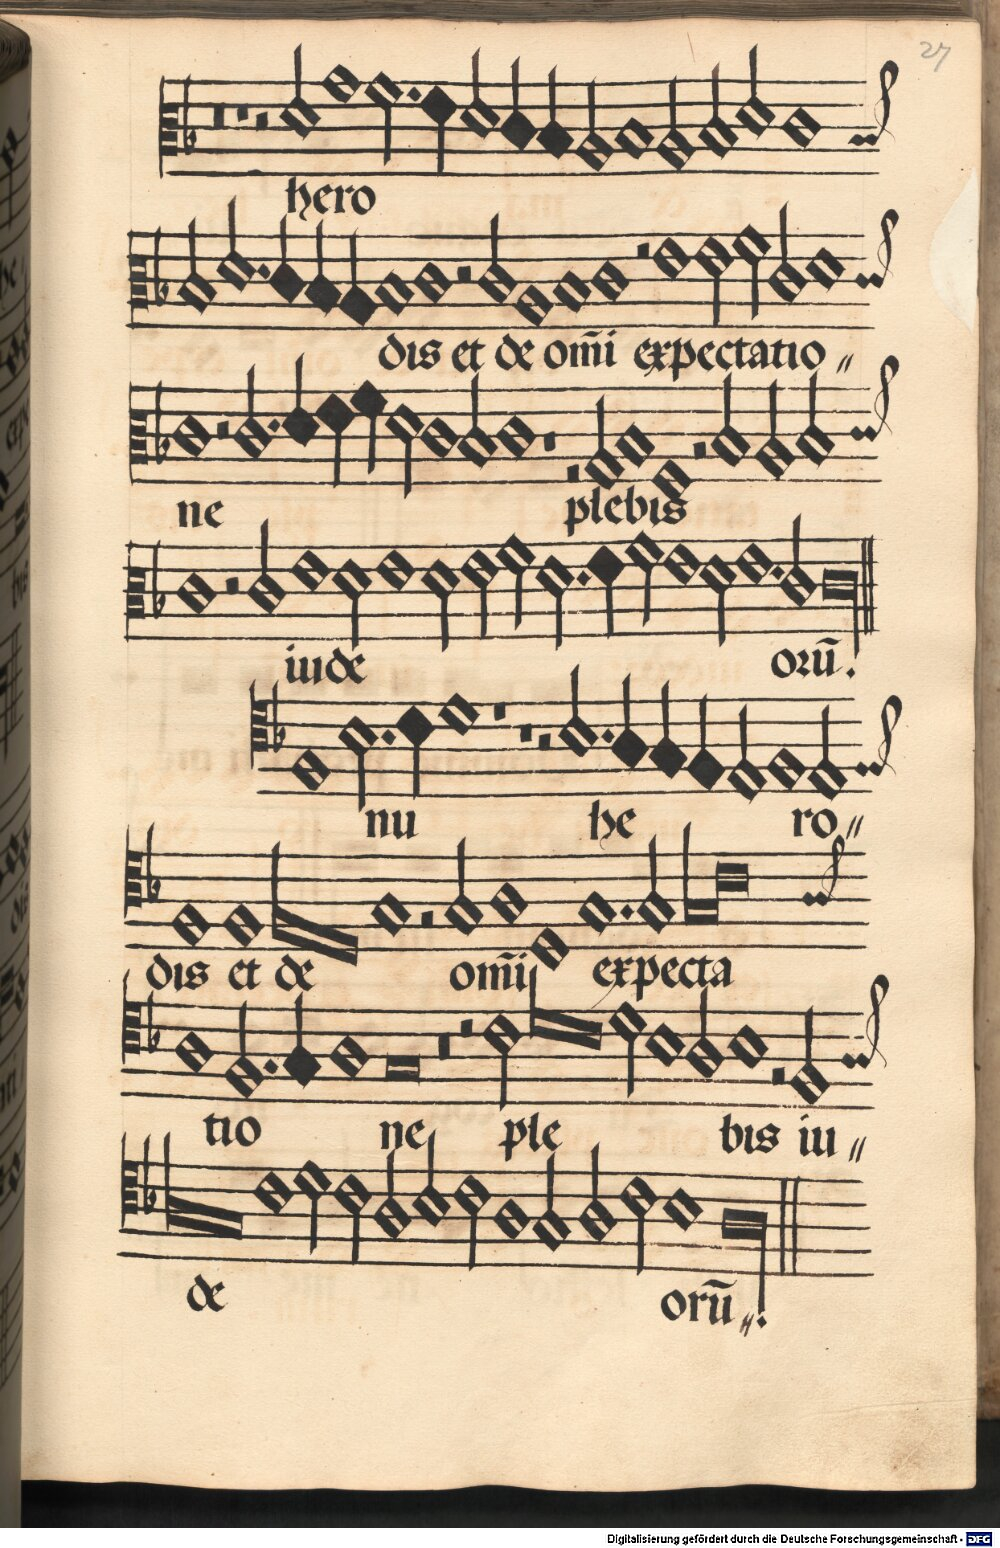 27
hero
dis et de om̄i expectatio〃
ne plebis
iude orū.
nu he ro〃
dis et de om̄i expecta
tio ne ple bis iu〃
de orū〃.
Digitalisierung gefördert durch die Deutsche Forschungsgemeinschaft - DFG